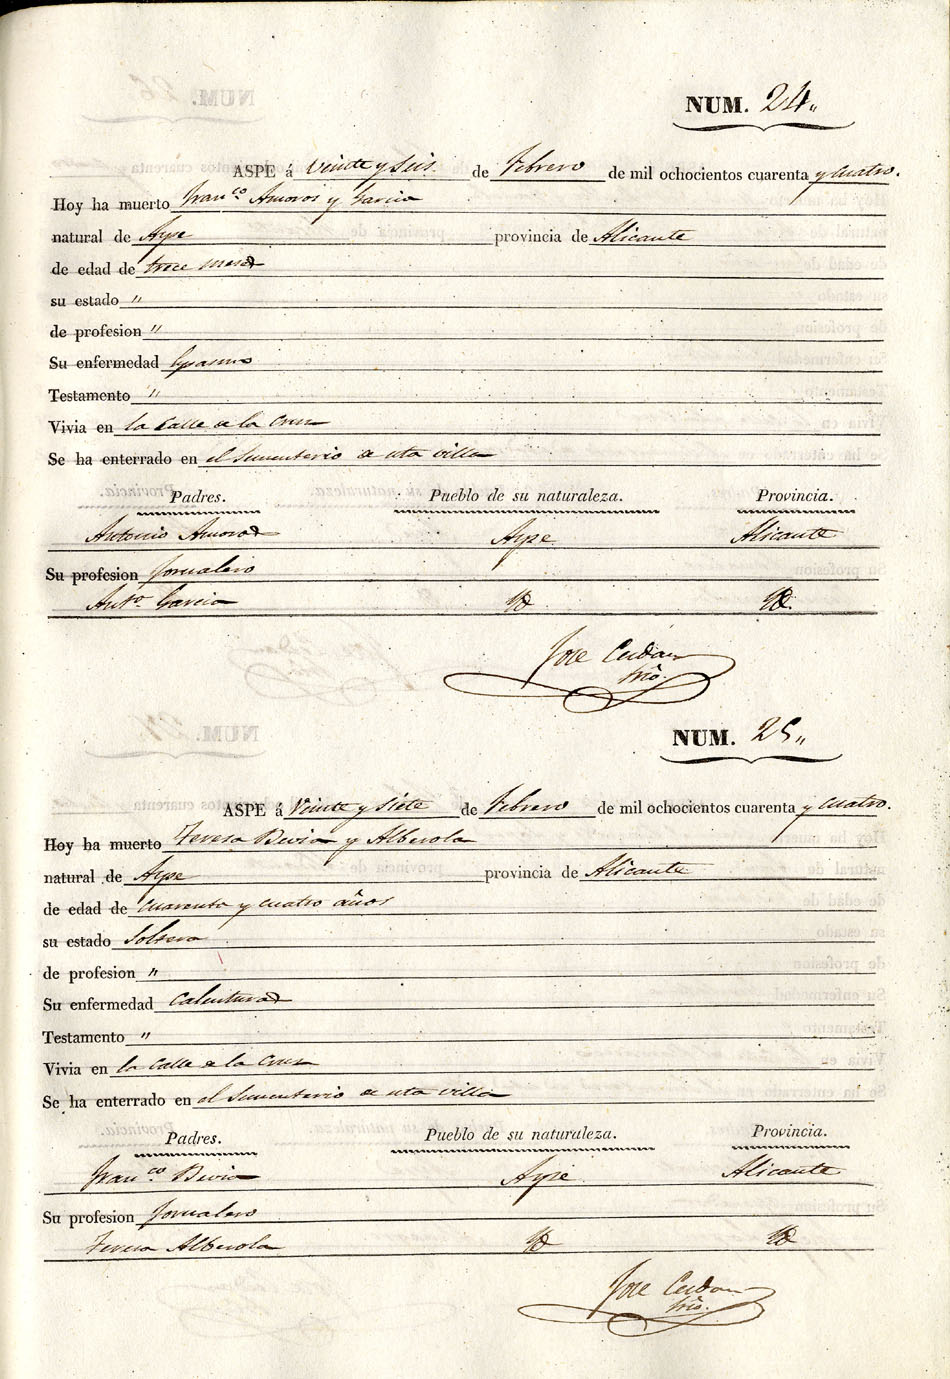 NUM. 24"
ASPE á Veinte y Seis de Febrero de mil ochocientos cuarenta y cuatro.
Hoy ha muerto Fran.co Amoros y Garcia
natural de Aspe provincia de Alicante
de edad de trece meses
su estado "
de profesion "
Su enfermedad Espasmo
Testamento "
Vivia en la Calle de la Cruz
Se ha enterrado en el Sementerio de esta villa
Padres. Pueblo de su naturaleza. Provincia.
Antonio Amoros Aspe Alicante
Su profesion Jornalero
Ant.a Garcia Yd Yd.
Jose
NUM. 25"
ASPE á Veinte y Siete de Febrero de mil ochocientos cuarenta y cuatro.
Hoy ha muerto Teresa Bevia y Alberola
natural de Aspe provincia de Alicante
de edad de cuarenta y cuatro años
su estado Soltera
de profesion "
Su enfermedad Calenturas
Testamento "
Vivia en la Calle de la Cruz
Se ha enterrado en el Sementerio de esta villa
Padres. Pueblo de su naturaleza. Provincia.
Fran.co Bevia Aspe Alicante
Su profesion Jornalero
Teresa Alberola Yd Yd
Jose